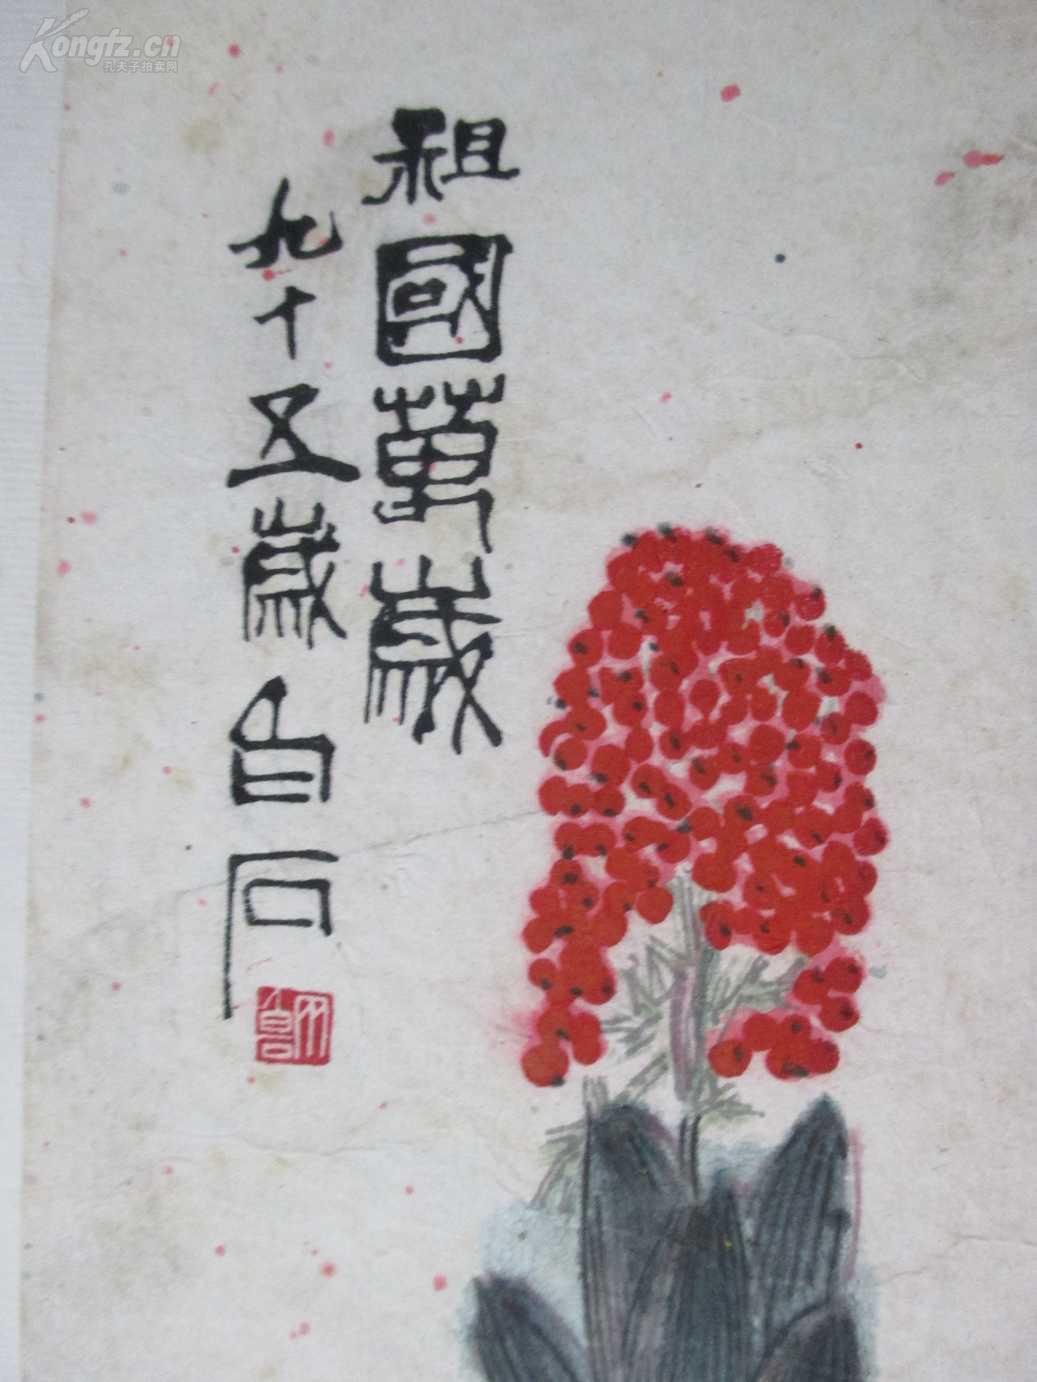 Kongfz.cn
孔夫子拍卖网
祖國萬歲
九十五歲白石